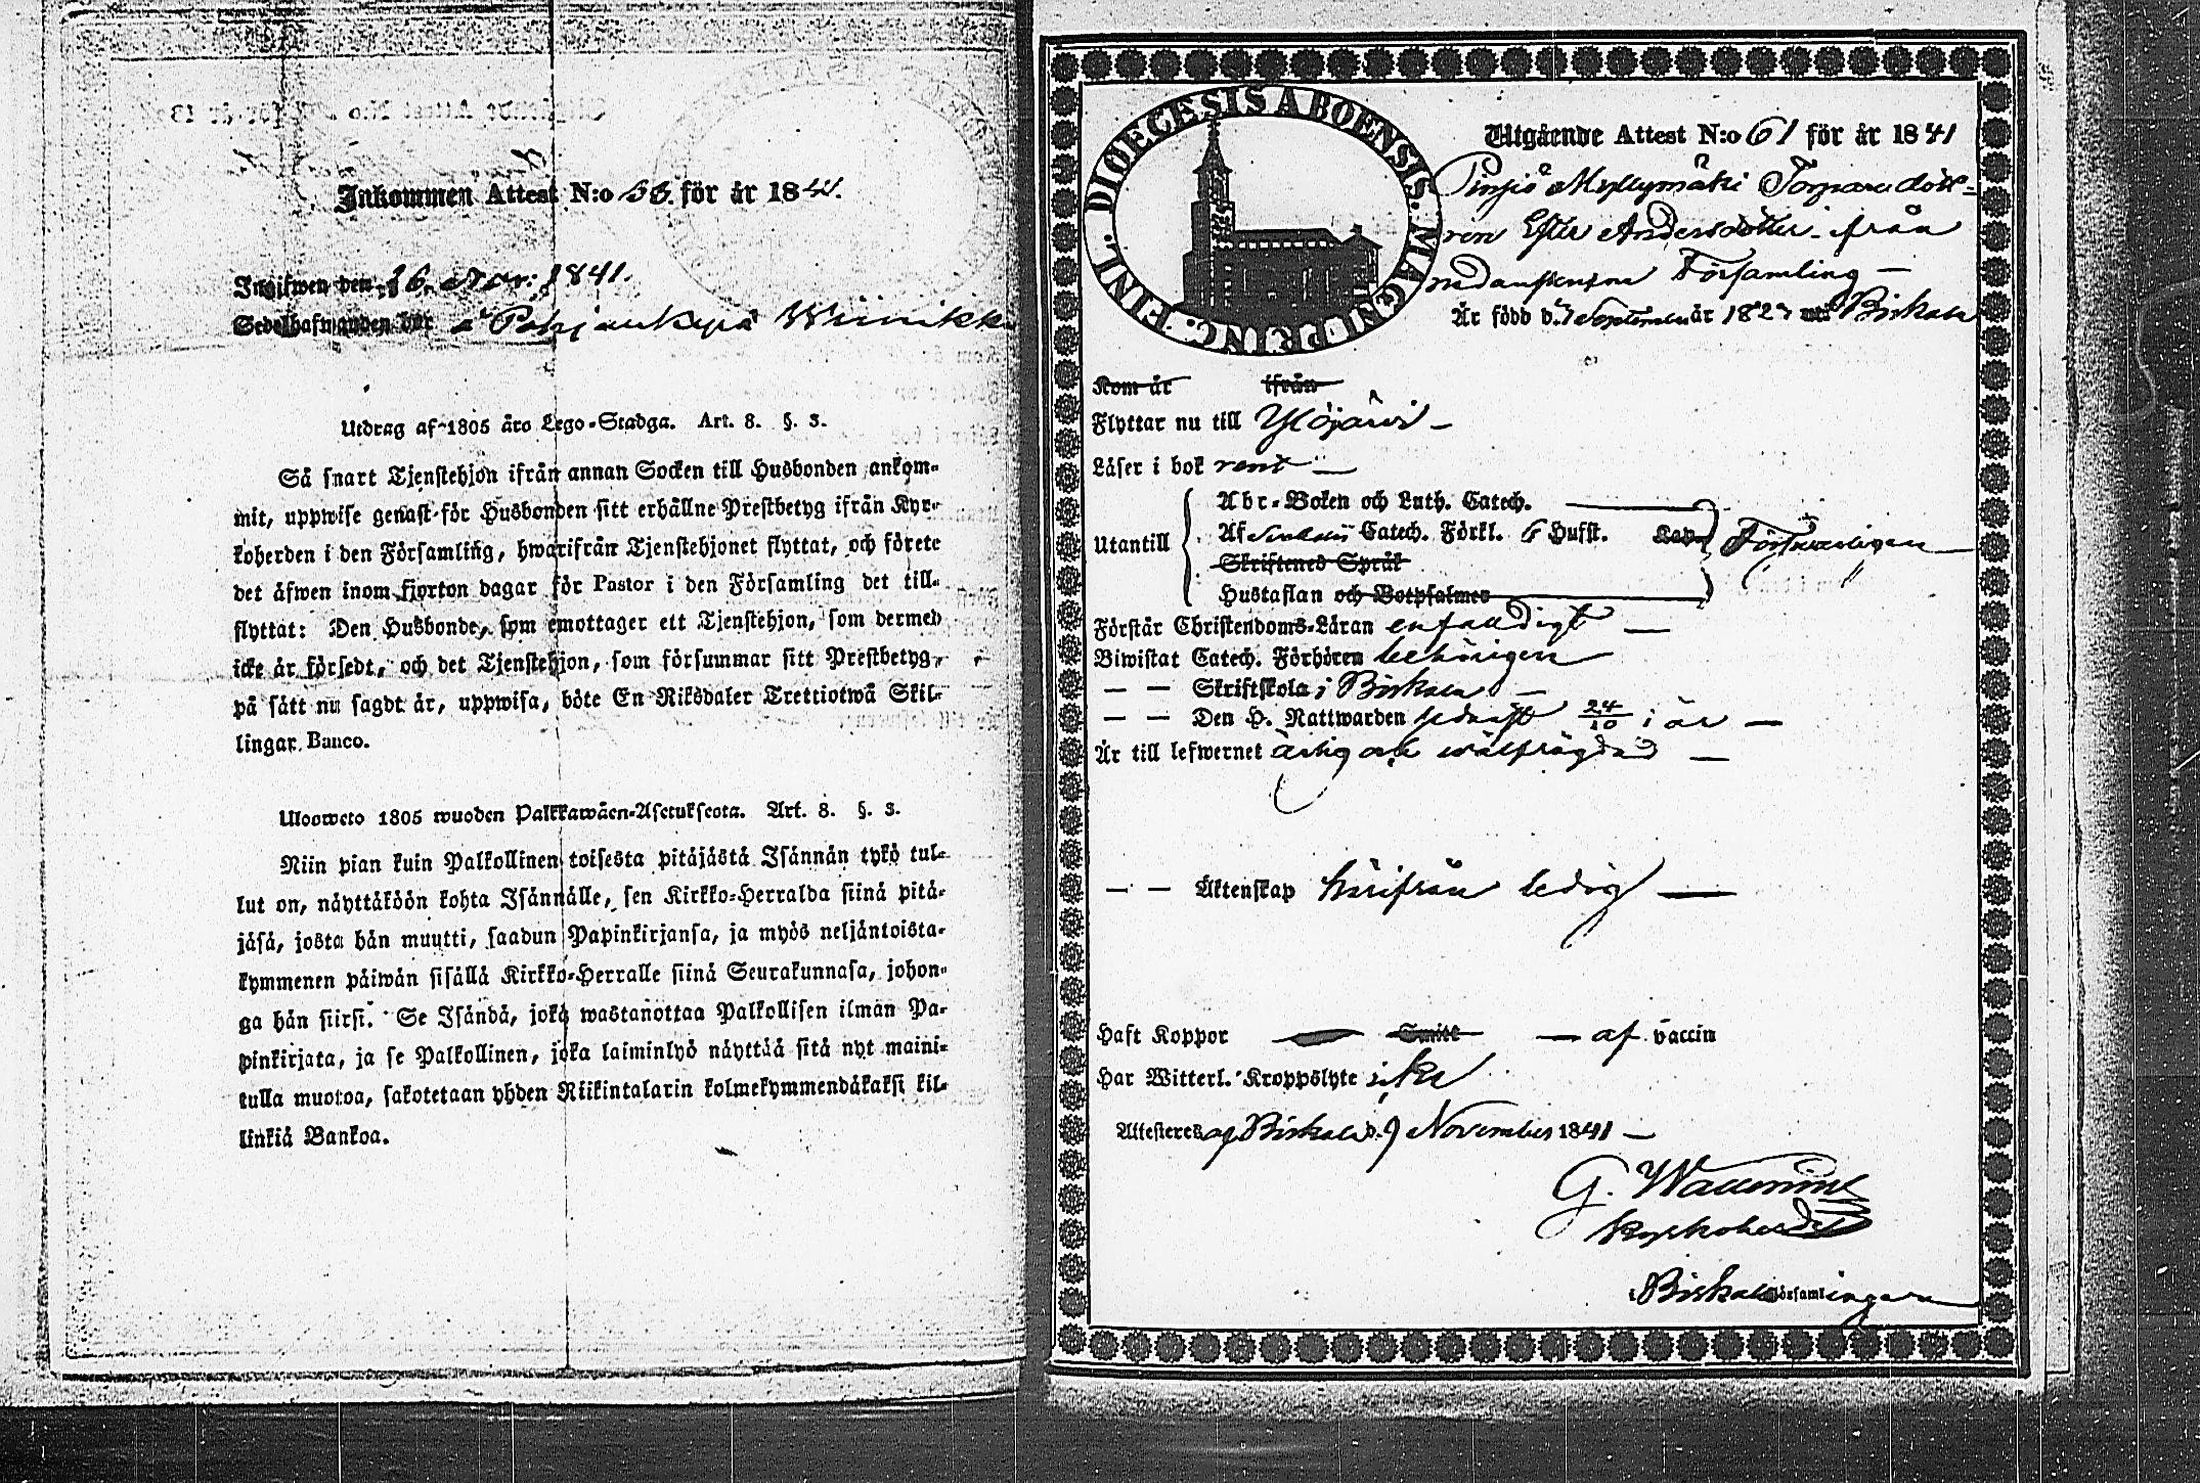 Inkommen Attest N:o 53. för år 1841.
Ingifwen den 16. Nov: 1841.
Sedelhafwanden bor å Pohjankyrö Wiinikk
Utdrag af 1805 års Lego-Stadga. Art. 8. §. 3.
Så snart Tjenstehjon ifrån annan Socken till Husbonden ankom-
mit, uppwise genast för Husbonden sitt erhållne Prestbetyg ifrån Kyr-
koherden i den Församling, hwarifrån Tjenstehjonet flyttat, och förete
det äfwen inom fjorton dagar för Pastor i den Församling det till-
flyttat: Den Husbonde, som emottager ett Tjenstehjon, som dermed
icke är försedt, och det Tjenstehjon, som försummar sitt Prestbetyg,
på sätt nu sagdt är, uppwisa, böte En Riksdaler Trettiotwå Skil-
lingar Banco.
Uloosweto 1805 wuoden Palkkawäen-Asetuksesta. Art. 8. §. 3.
Niin pian kuin Palkollinen toisesta pitäjästä Isännän tykö tul-
lut on, näyttäköön kohta Isännälle, sen Kirkko-Herralda siinä pitä-
jäsä, josta hän muutti, saadun Papinkirjansa, ja myös neljäntoista-
kymmenen päiwän sisällä Kirkko-Herralle siinä Seurakunnasa, johon-
ga hän siirsi. Se Isändä, joka wastanottaa Palkollisen ilman Pa-
pinkirjata, ja se Palkollinen, joka laiminlyö näyttää sitä nyt maini-
tulla muotoa, sakotetaan yhden Riikintalarin kolmekymmendäkaksi kil-
linkiä Bankoa.
DIOECESIS ABOENSIS. MAGNI PRINC. FINL.
Utgående Attest N:o 61 för år 1841
Pinsiö Myllymäki Torparedott-
ren Ester Andersdotter från
nedanskrefne Församling —
Är född d. 7 September år 1823 uti Birkala
Kom år ifrån
Flyttar nu till Ylöjärwi —
Läser i bok rent —
Utantill
Abc-Boken och Luth. Catech.
Af Swebelii Catech. Förkl. 6 Hufst. Kap.
Skriftenes Språk
Hustaflan och Botpsalmer
Förswarligen
Förstår Christendoms-Läran enfaldigt —
Biwistat Catech. Förhören behörigen
— — Skriftskola i Birkala —
— — Den H. Nattwarden sednast 24/10 i år —
Är till lefwernet ärlig och wälfrägdad —
— — Äktenskap härifrån ledig —
Haft Koppor — Smitt — af vaccin
Har Witterl. Kroppslyte icke
Attesteres af Birkala d. 9 November 1841 —
G. Wallenius
Kyrkoherde
i Birkala Församlingarne